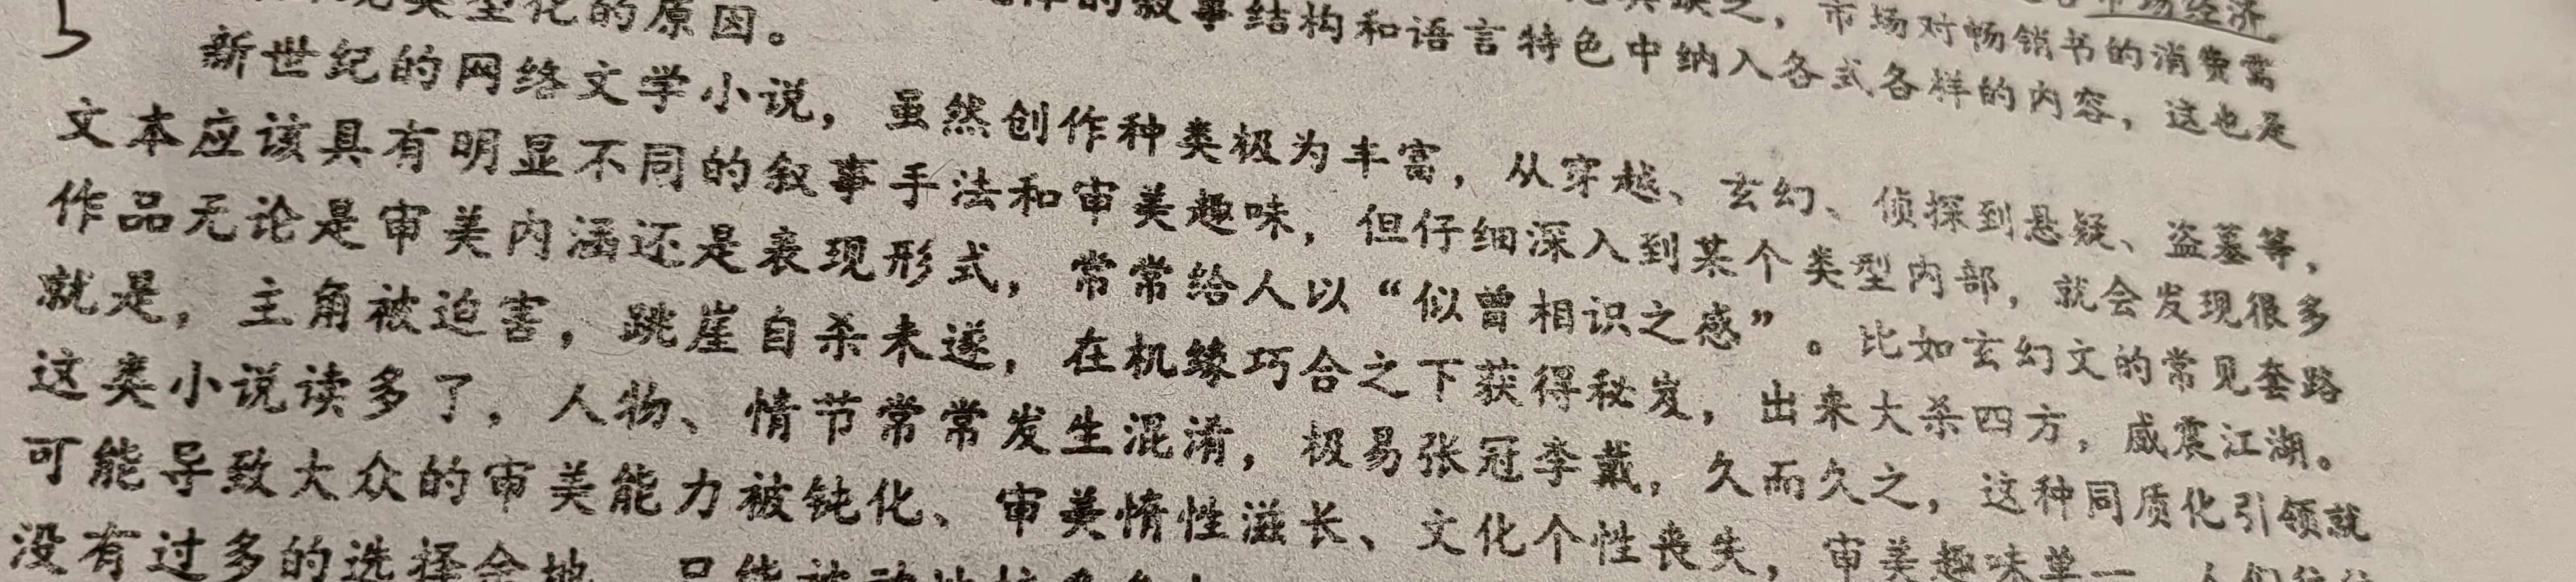 市场经济
市场对畅销书的消费需
类型化的原因。
叙事结构和语言特色中纳入各式各样的内容，这也是
新世纪的网络文学小说，虽然创作种类极为丰富，从穿越、玄幻、侦探到悬疑、盗墓等，
文本应该具有明显不同的叙事手法和审美趣味，但仔细深入到某个类型内部，就会发现很多
作品无论是审美内涵还是表现形式，常常给人以“似曾相识之感”。比如玄幻文的常见套路
就是，主角被迫害，跳崖自杀未遂，在机缘巧合之下获得秘岌，出来大杀四方，威震江湖。
这类小说读多了，人物、情节常常发生混淆，极易张冠李戴，久而久之，这种同质化引领就
可能导致大众的审美能力被钝化、审美惰性滋长、文化个性丧失，审美趣味单一
没有过多的选择余地